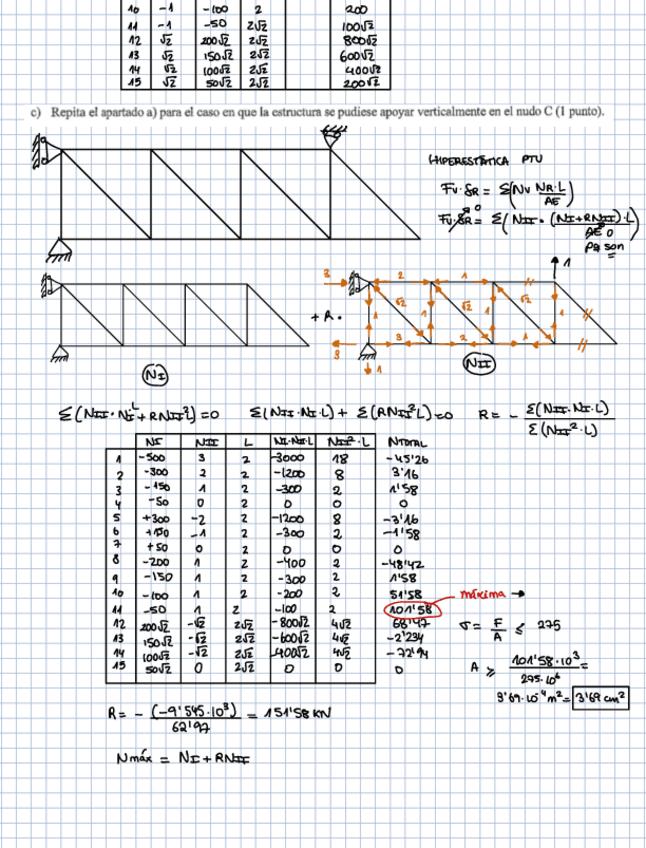 10 -1 -100 2 200
11 -1 -50 2√2 100√2
12 √2 200√2 2√2 800√2
13 √2 150√2 2√2 600√2
14 √2 100√2 2√2 400√2
15 √2 50√2 2√2 200√2
c) Repita el apartado a) para el caso en que la estructura se pudiese apoyar verticalmente en el nudo C (1 punto).
HIPERESTÁTICA PTU
Fv·δR = Σ(Nv NR·L/AE)
Fv·δR = 0 Σ(NII·(NI+RNII)·L/AE) 0
pq son
NI
+ R·
3 2 1 1
√2 √2 √2
1 1 1 1
3 3 2 1
1
NII
Σ(NII·NI·L+RNII²L)=0 Σ(NII·NI·L)+Σ(RNII²L)=0 R=-Σ(NII·NI·L)/Σ(NII²·L)
NI NII L NI·NII·L NII²·L NTOTAL
1 -500 3 2 -3000 18 -45'26
2 -300 2 2 -1200 8 3'16
3 -150 1 2 -300 2 1'58
4 -50 0 2 0 0 0
5 +300 -2 2 -1200 8 -3'16
6 +150 -1 2 -300 2 -1'58
7 +50 0 2 0 0 0
8 -200 1 2 -400 2 -48'42
9 -150 1 2 -300 2 1'58
10 -100 1 2 -200 2 51'58 máxima →
11 -50 1 2 -100 2 101'58
12 200√2 -√2 2√2 -800√2 4√2 68'47
13 150√2 -√2 2√2 -600√2 4√2 -2'234
14 100√2 -√2 2√2 -400√2 4√2 -72'94
15 50√2 0 2√2 0 0 0
σ = F/A ≤ 275
A ≥ 101'58·10³/275·10⁶ =
3'69·10⁻⁴ m² = 3'69 cm²
R = -(-9'545·10³)/62'97 = 151'58 KN
Nmáx = NI + RNII